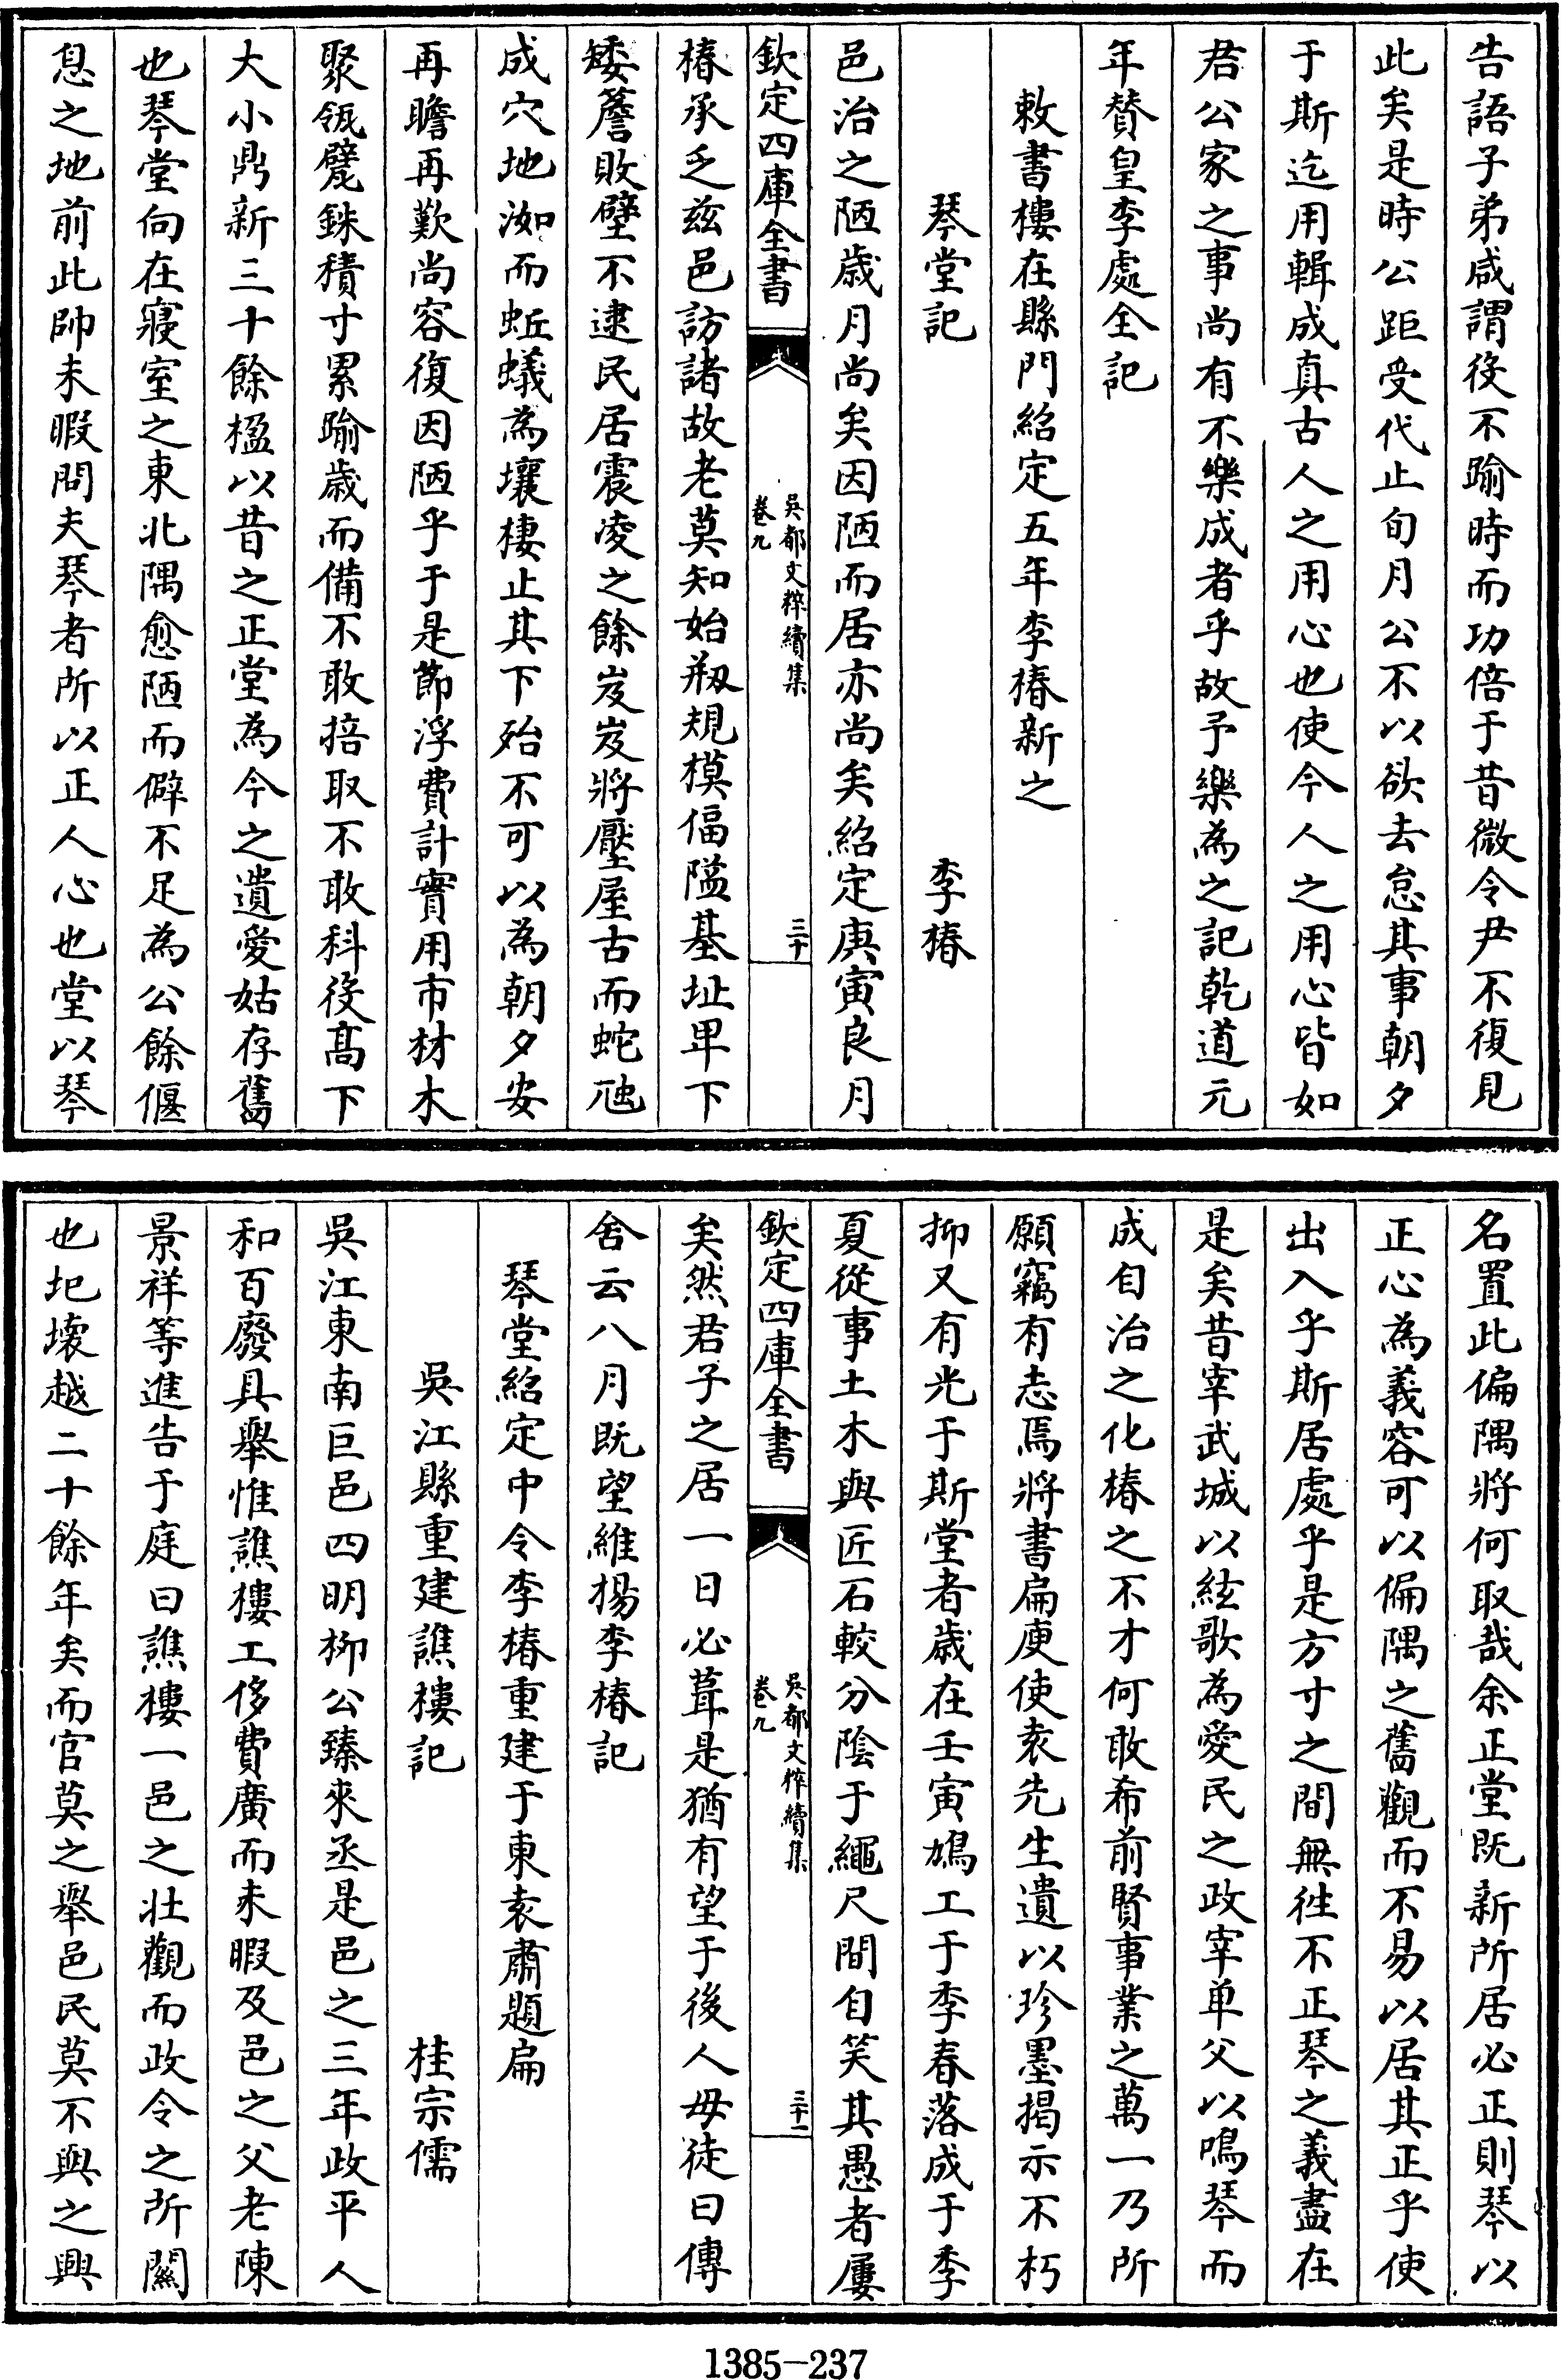 告語子弟咸謂役不踰時而功倍于昔微令尹不復見
此矣是時公距受代止旬月公不以欲去怠其事朝夕
于斯迄用輯成真古人之用心也使今人之用心皆如
君公家之事尚有不樂成者乎故予樂為之記乾道元
年賛皇李處全記
敕書樓在縣門紹定五年李椿新之
琴堂記　李椿
邑治之陋歲月尚矣因陋而居亦尚矣紹定庚寅良月
欽定四庫全書　吳都文粹續集　卷九　三十
椿承乏兹邑訪諸故老莫知始剏規模偪隘基址卑下
矮簷敗壁不逮民居震凌之餘岌岌將壓屋古而蛇虺
成穴地洳而蚯蟻為壤棲止其下殆不可以為朝夕安
再瞻再歎尚容復因陋乎于是節浮費計實用市材木
聚瓴甓銖積寸累踰歲而備不敢掊取不敢科役髙下
大小鼎新三十餘楹以昔之正堂為今之遺愛姑存舊
也琴堂向在寢室之東北隅愈陋而僻不足為公餘偃
息之地前此帥未暇問夫琴者所以正人心也堂以琴
名置此偏隅將何取哉余正堂既新所居必正則琴以
正心為義容可以偏隅之舊觀而不易以居其正乎使
出入乎斯居處乎是方寸之間無徃不正琴之義盡在
是矣昔宰武城以絃歌為愛民之政宰单父以鳴琴而
成自治之化椿之不才何敢希前賢事業之萬一乃所
願竊有志焉將書扁㢘使袁先生遺以珍墨揭示不朽
抑又有光于斯堂者歲在壬寅鳩工于季春落成于季
夏從事土木與匠石較分陰于繩尺間自笑其愚者屢
欽定四庫全書　吳都文粹續集　卷九　三十一
矣然君子之居一日必葺是猶有望于後人毋徒曰傳
舍云八月既望維揚李椿記
琴堂紹定中令李椿重建于東袁肅題扁
吳江縣重建譙樓記　桂宗儒
吳江東南巨邑四明柳公臻來丞是邑之三年政平人
和百廢具舉惟譙樓工侈費廣而未暇及邑之父老陳
景祥等進告于庭曰譙樓一邑之壯觀而政令之所關
也圮壞越二十餘年矣而官莫之舉邑民莫不與之興
1385-237